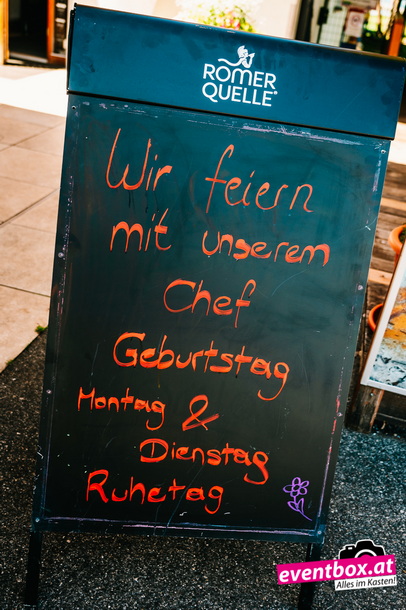 RÖMER
QUELLE®
Wir feiern
mit unserem
Chef
Geburtstag
Montag &
Dienstag
Ruhetag
eventbox.at
Alles im Kasten!